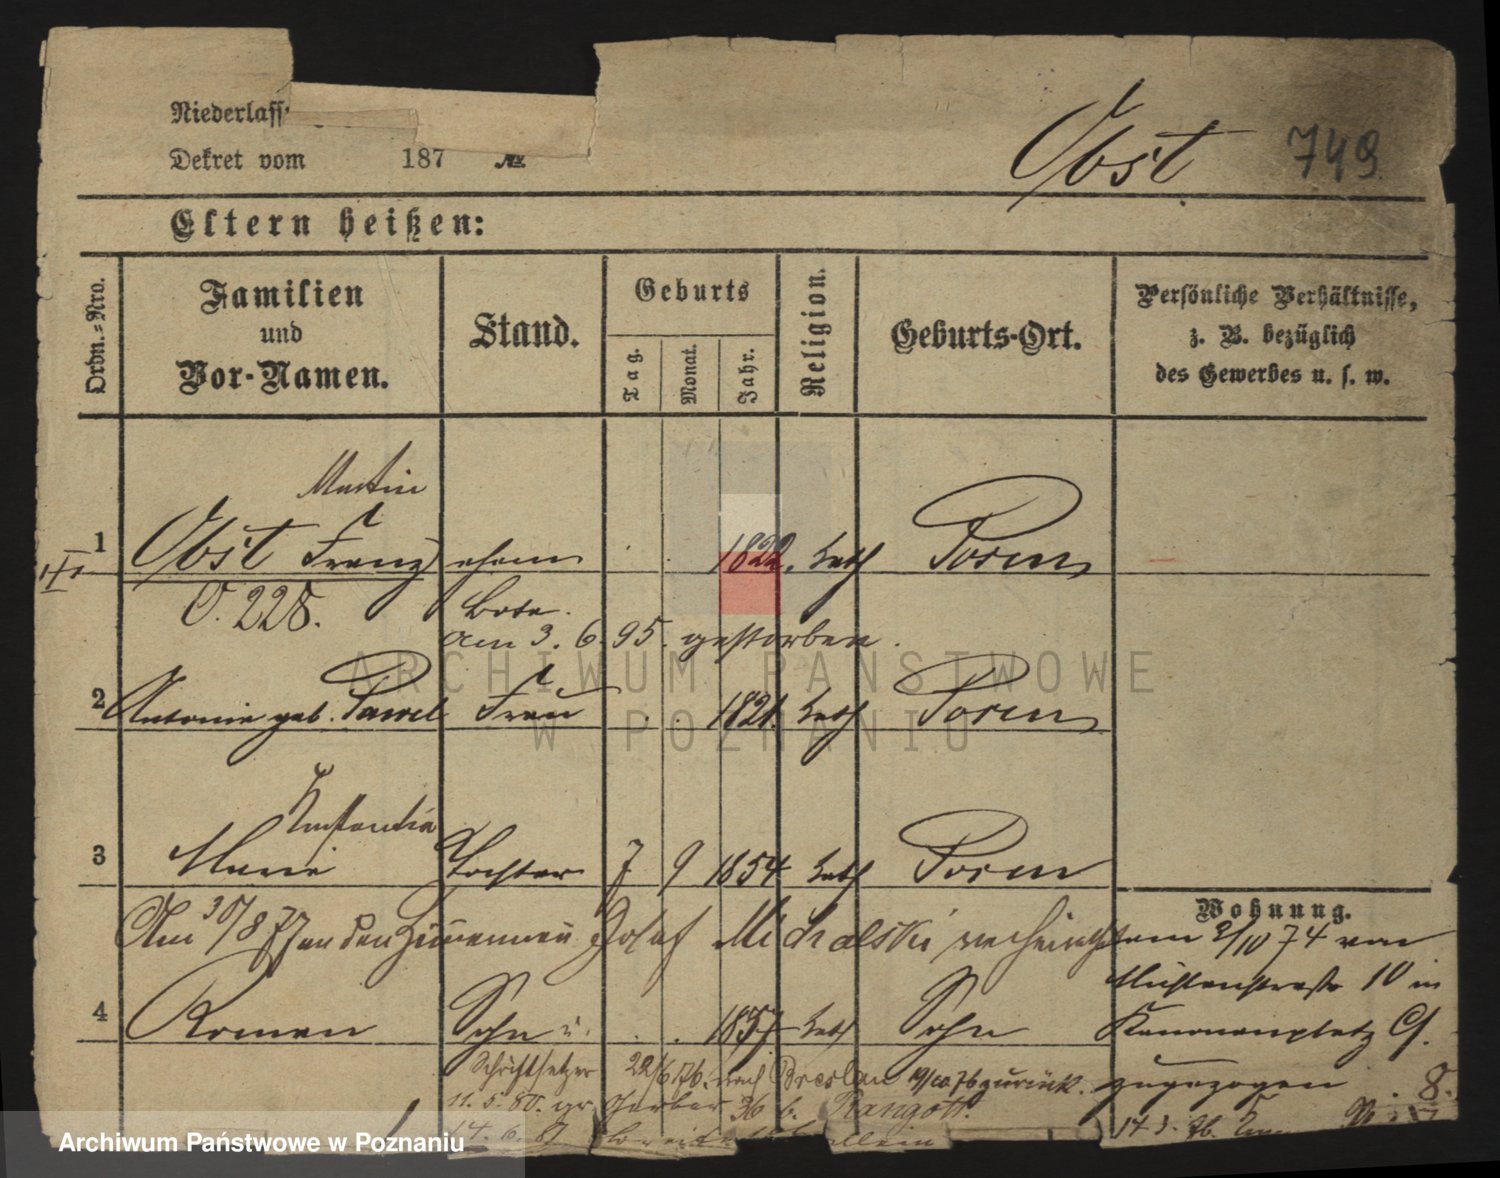 Niederlass
Dekret vom 187 №
Obst 749
Eltern heißen:
Ordn.-Nro.
Familien und Vor-Namen.
Stand.
Geburts
Tag.
Monat.
Jahr.
Religion.
Geburts-Ort.
Persönliche Verhältnisse,
z. B. bezüglich
des Gewerbes u. s. w.
Martin
1 Obst Franz ehem 1822. kath Posen
O. 228. Bote.
am 3. 6. 95. gestorben.
2 Antonie geb. Pawel Frau 1821. kath Posen
Konstantia
3 Marie Tochter 7 9 1854 kath Posen
Am 30/8 77 an den Josef Michalski verheirathet
4 Roman Sohn u. 1857 kath
Schriftsetzer 22/6 76. nach Breslau 19/10 76 zurück.
11. 5. 80. gr. Gerber 36 b.
14. 6. 81
Wohnung.
am 2/10 74 von
Mühlenstraße 10 in
Kanonenplatz
zugezogen 8.
14 3. 76.
ARCHIWUM PAŃSTWOWE
W POZNANIU
Archiwum Państwowe w Poznaniu